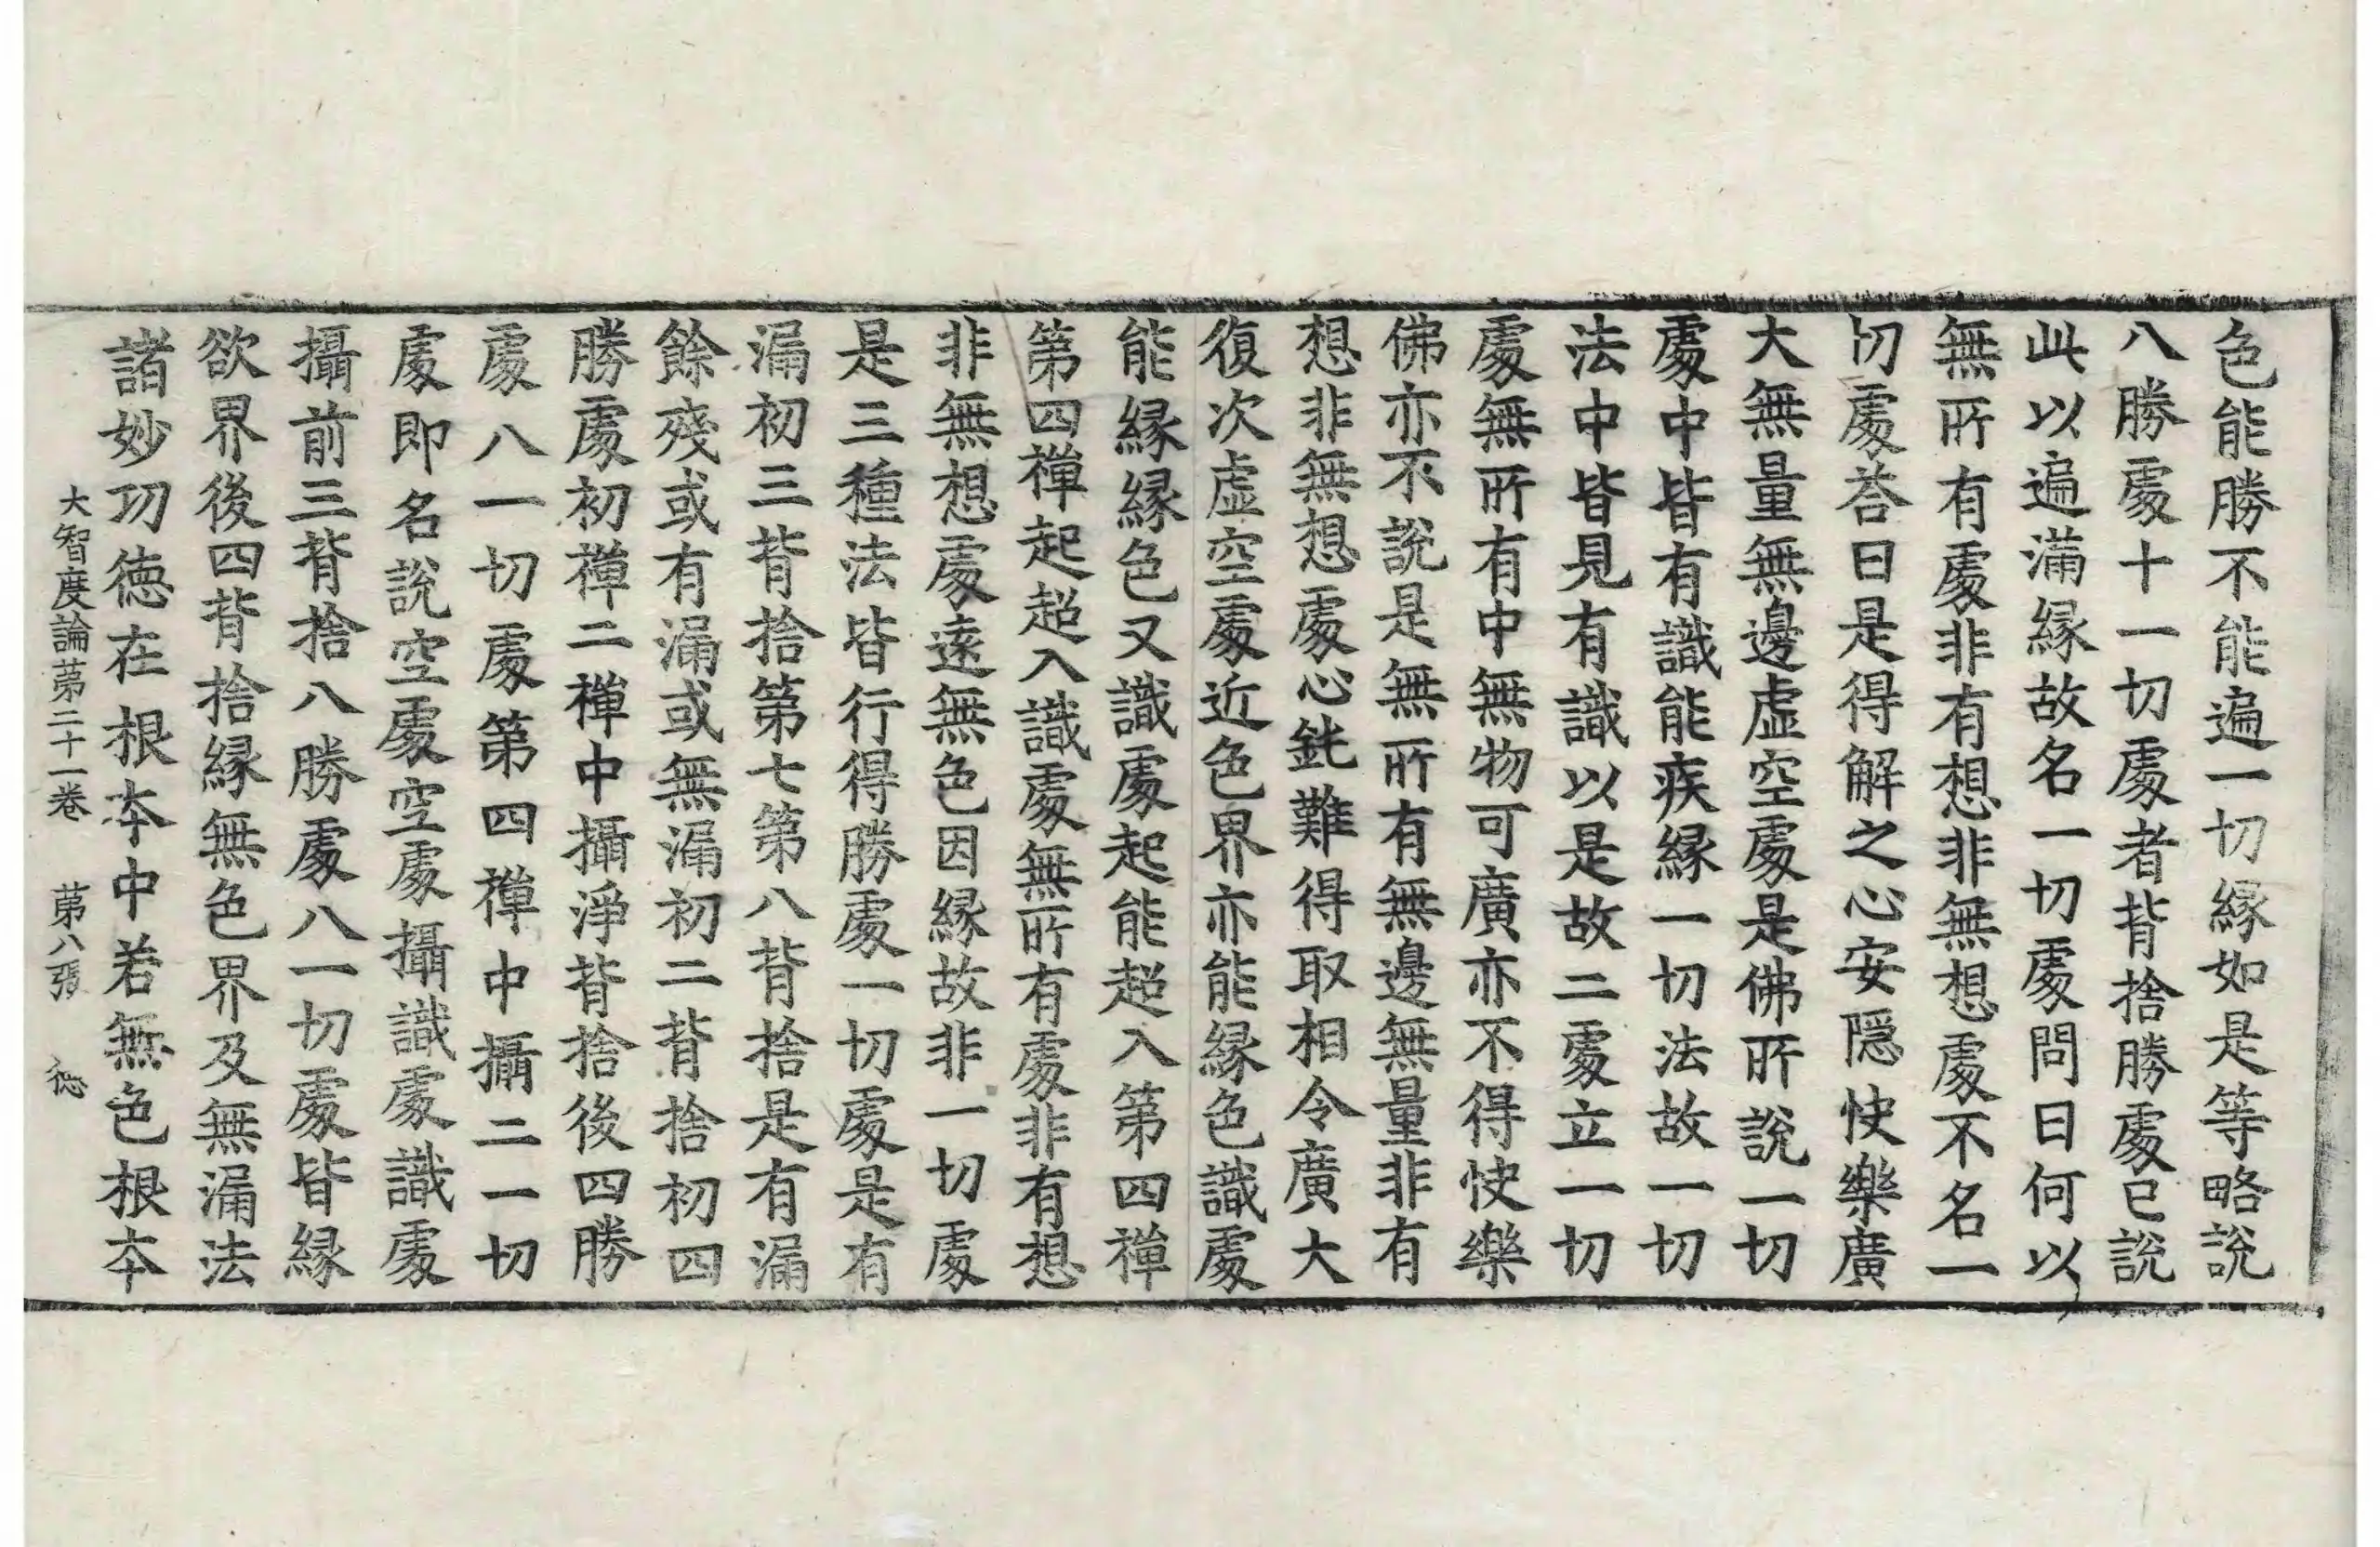 色能勝不能遍一切緣如是等略說
八勝處十一切處者背捨勝處已說
此以遍滿緣故名一切處問曰何以
無所有處非有想非無想處不名一
切處荅曰是得解之心安隱快樂廣
大無量無邊虛空處是佛所說一切
處中皆有識能疾緣一切法故一切
法中皆見有識以是故二處立一切
處無所有中無物可廣亦不得快樂
佛亦不說是無所有無邊無量非有
想非無想處心鈍難得取相令廣大
復次虛空處近色界亦能緣色識處
能緣緣色又識處起能超入第四禪
第四禪起超入識處無所有處非有想
非無想處遠無色因緣故非一切處
是三種法皆行得勝處一切處是有
漏初三背捨第七第八背捨是有漏
餘殘或有漏或無漏初二背捨初四
勝處初禪二禪中攝淨背捨後四勝
處八一切處第四禪中攝二一切
處即名說空處空處攝識處識處
攝前三背捨八勝處八一切處皆緣
欲界後四背捨緣無色界及無漏法
諸妙功德在根本中若無色根本
大智度論苐二十一卷 苐八張 德